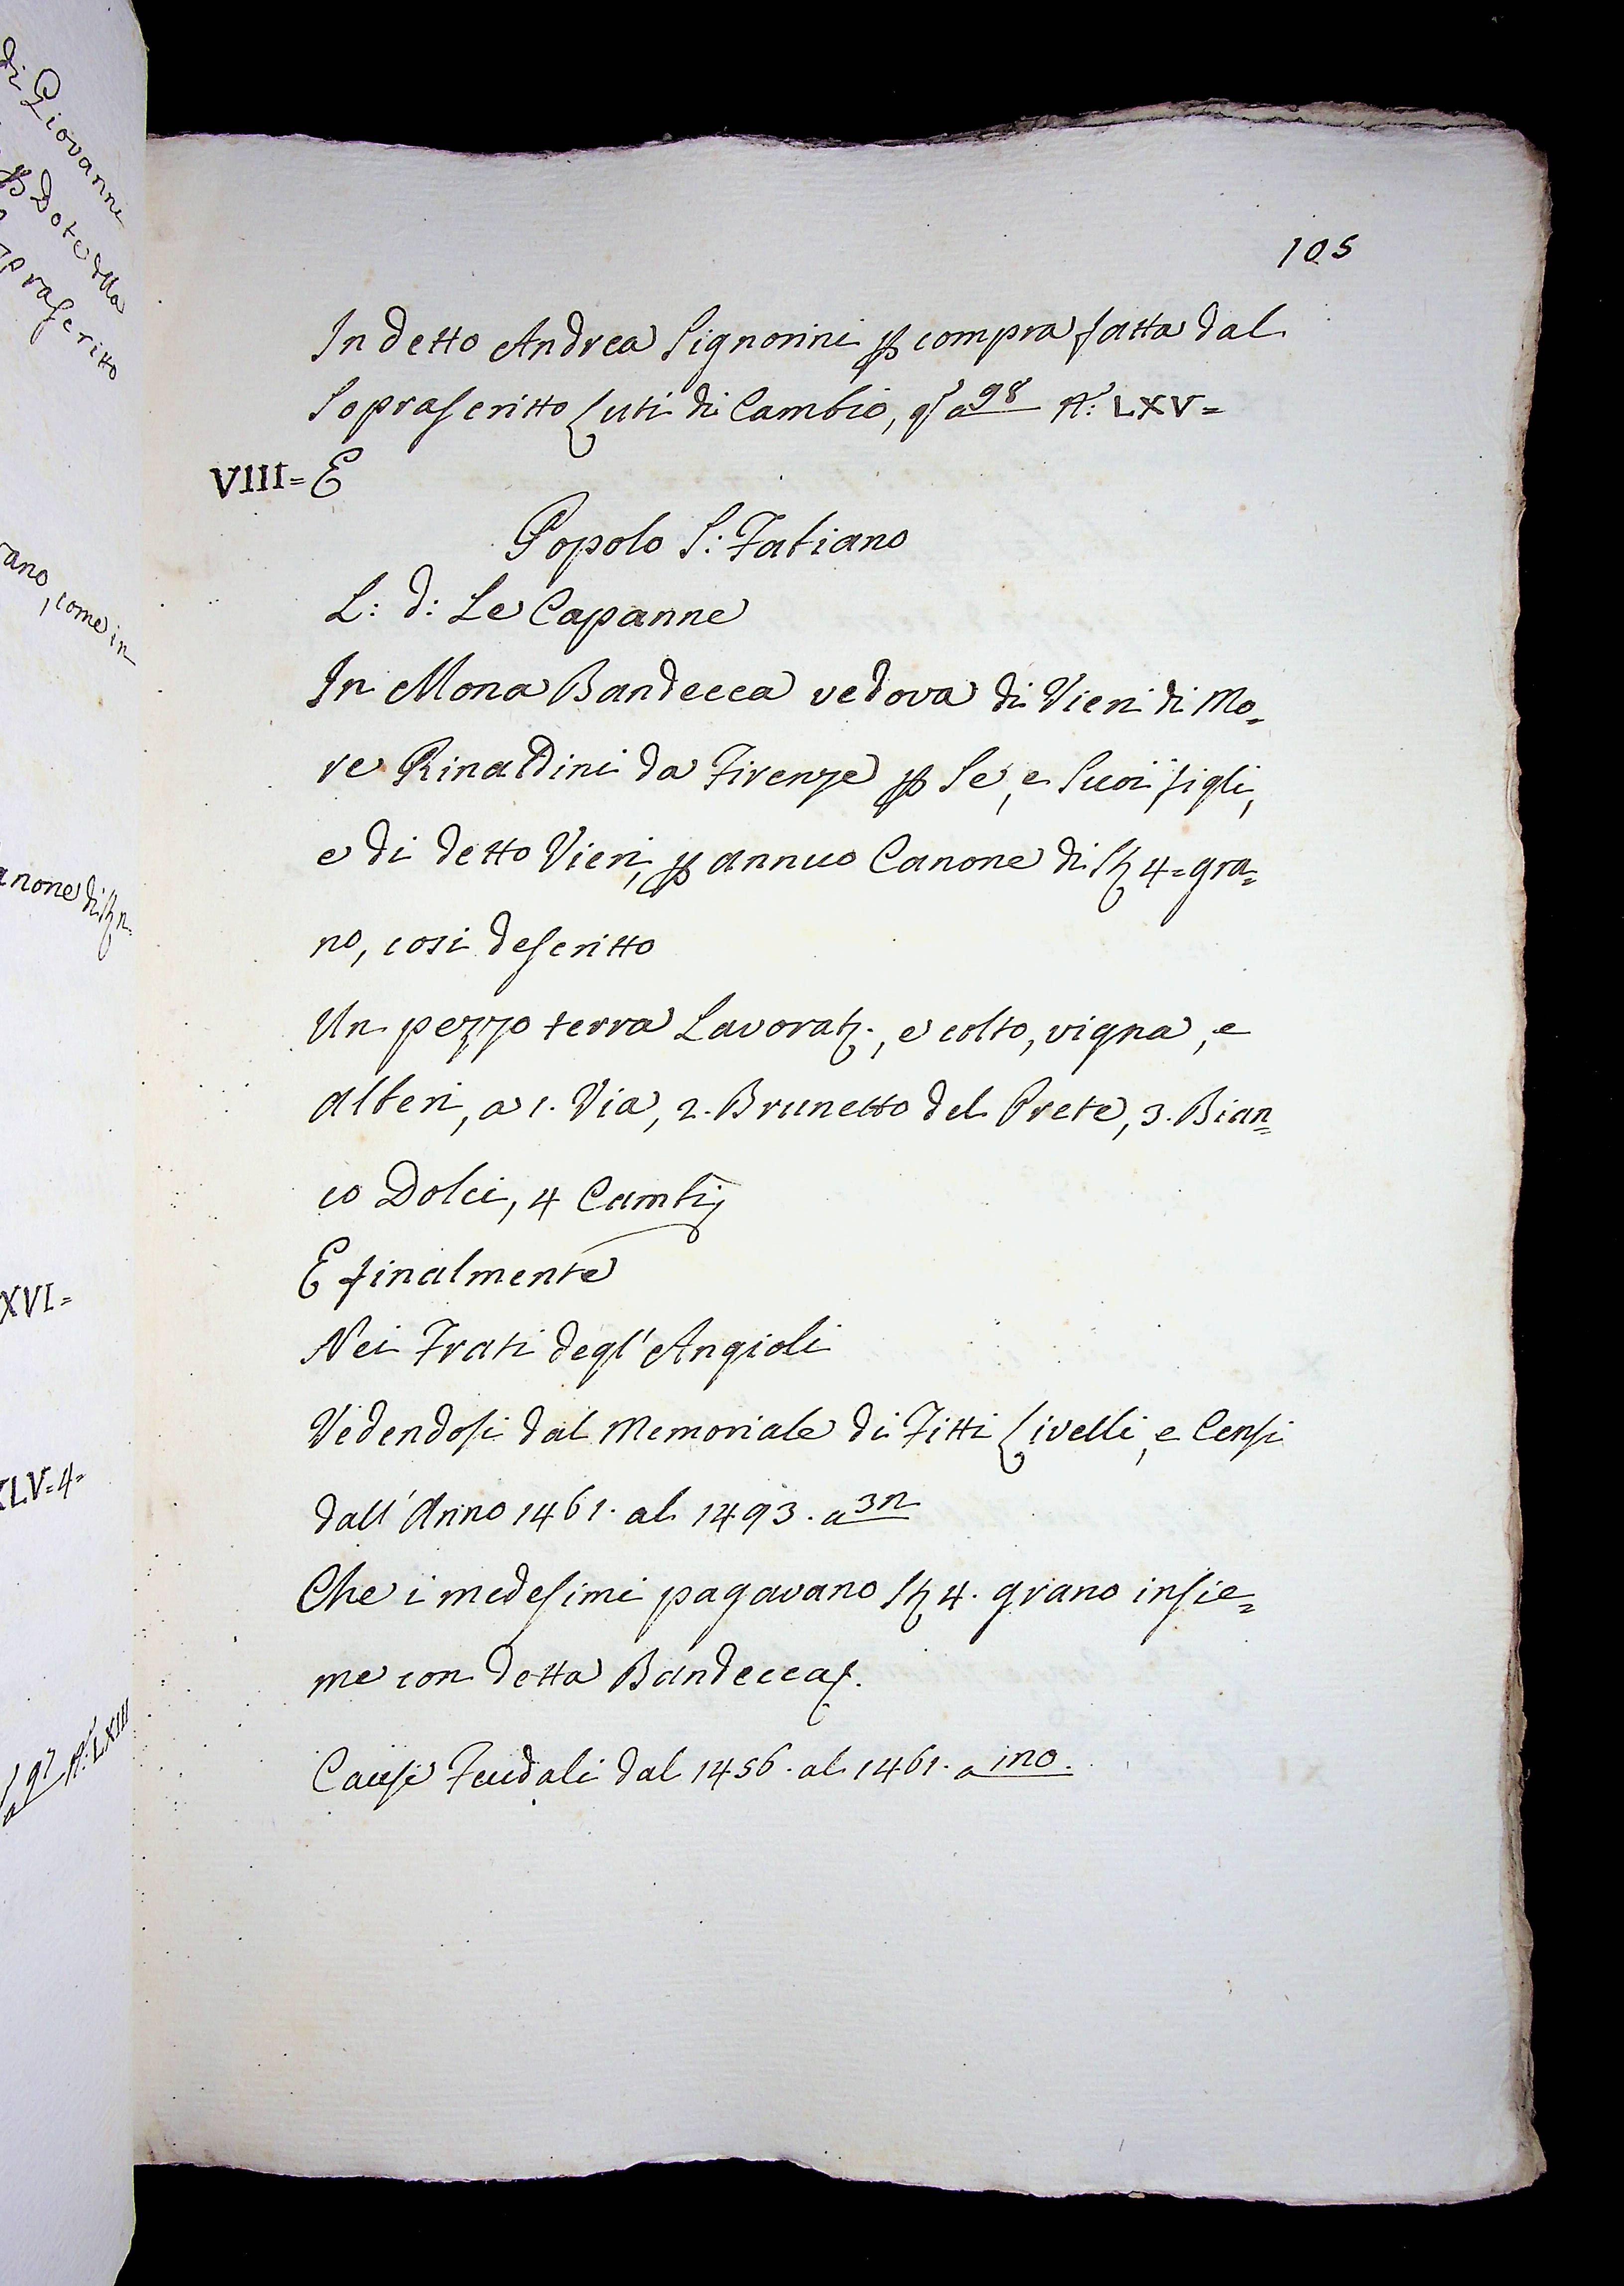 di Giovanni
Dote dlla
prascritto
ano, come in
anone di
XVI=
XLV=4=
97 A: LXIII
105
In detto Andrea Signorini p compra fatta dal
Soprascritto Luti di Cambio, qd a 98 A: LXV=
VIII= E
Popolo S: Fabiano
L: d: Le Capanne
In Mona Bandecca vedova di Vieri di Mo=
re Rinaldini da Firenze p Se, e Suoi figli,
e di detto Vieri, p annuo Canone di St 4= gra=
no, cosi descritto
Un pezzo terra Lavorat:, e colto, vigna, e
alberi, a 1. Via, 2. Brunetto del Prete, 3. Bian=
co Dolci, 4 Cambij
E finalmente
Nei Frati degl' Angioli
Vedendosi dal Memoriale di Fitti Livelli, e Censi
dall' Anno 1461. al 1493. a 32
Che i medesimi pagavano St 4. grano insie=
me con detta Bandecca.
Cause Feudali dal 1456. al 1461. a 120.